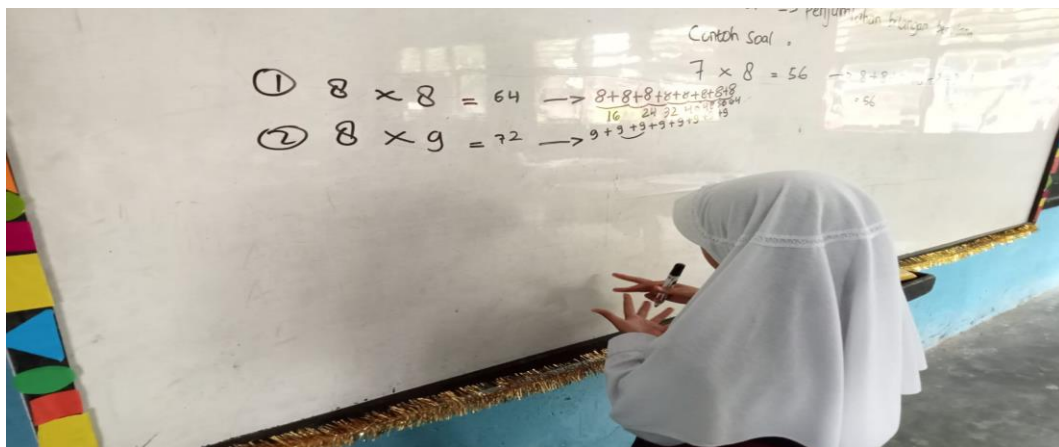 => Penjumlahan bilangan
Contoh Soal.
7 × 8 = 56 → 8+8
= 56
① 8 × 8 = 64 → 8+8+8+8+8+8+8+8
16 24 32
② 8 × 9 = 72 → 9+9+9+9+9+9